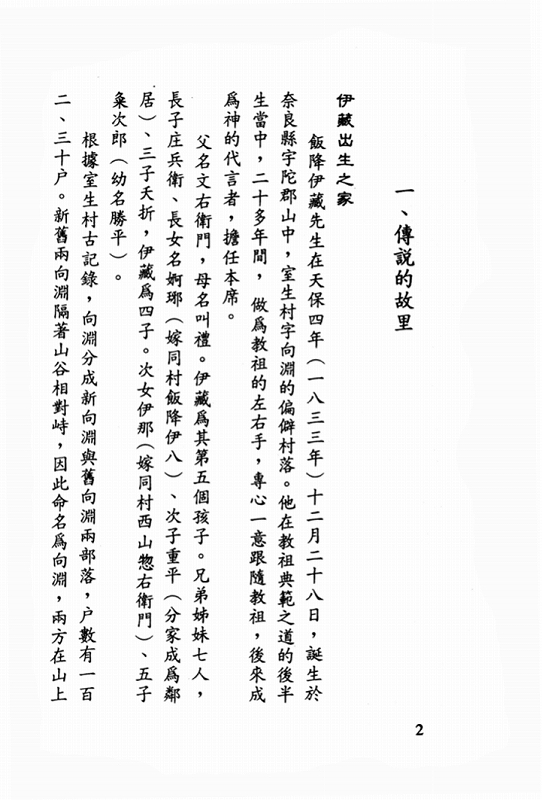 一、傳説的故里
伊藏出生之家
飯降伊藏先生在天保四年（一八三三年）十二月二十八日，誕生於
奈良縣宇陀郡山中，室生村字向淵的偏僻村落。他在教祖典範之道的後半
生當中，二十多年間，做爲教祖的左右手，專心一意跟隨教祖，後來成
爲神的代言者，擔任本席。
父名文右衛門，母名叫禮。伊藏爲其第五個孩子。兄弟姊妹七人，
長子庄兵衛、長女名婀琊（嫁同村飯降伊八）、次子重平（分家成爲鄰
居）、三子夭折，伊藏爲四子。次女伊那（嫁同村西山惣右衛門）、五子
粂次郎（幼名勝平）。
根據室生村古記錄，向淵分成新向淵與舊向淵兩部落，户數有一百
二、三十户。新舊兩向淵隔著山谷相對峙，因此命名爲向淵，兩方在山上
2